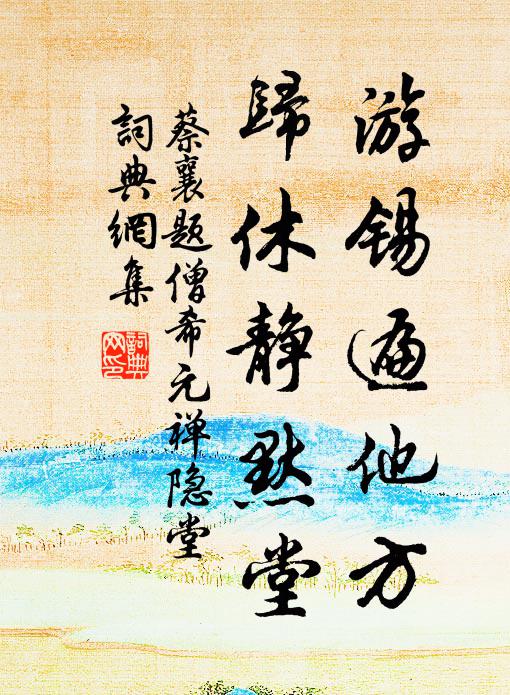 游锡遍他方
歸休静默堂
蔡襄题僧希元禅隐堂
詞典網集